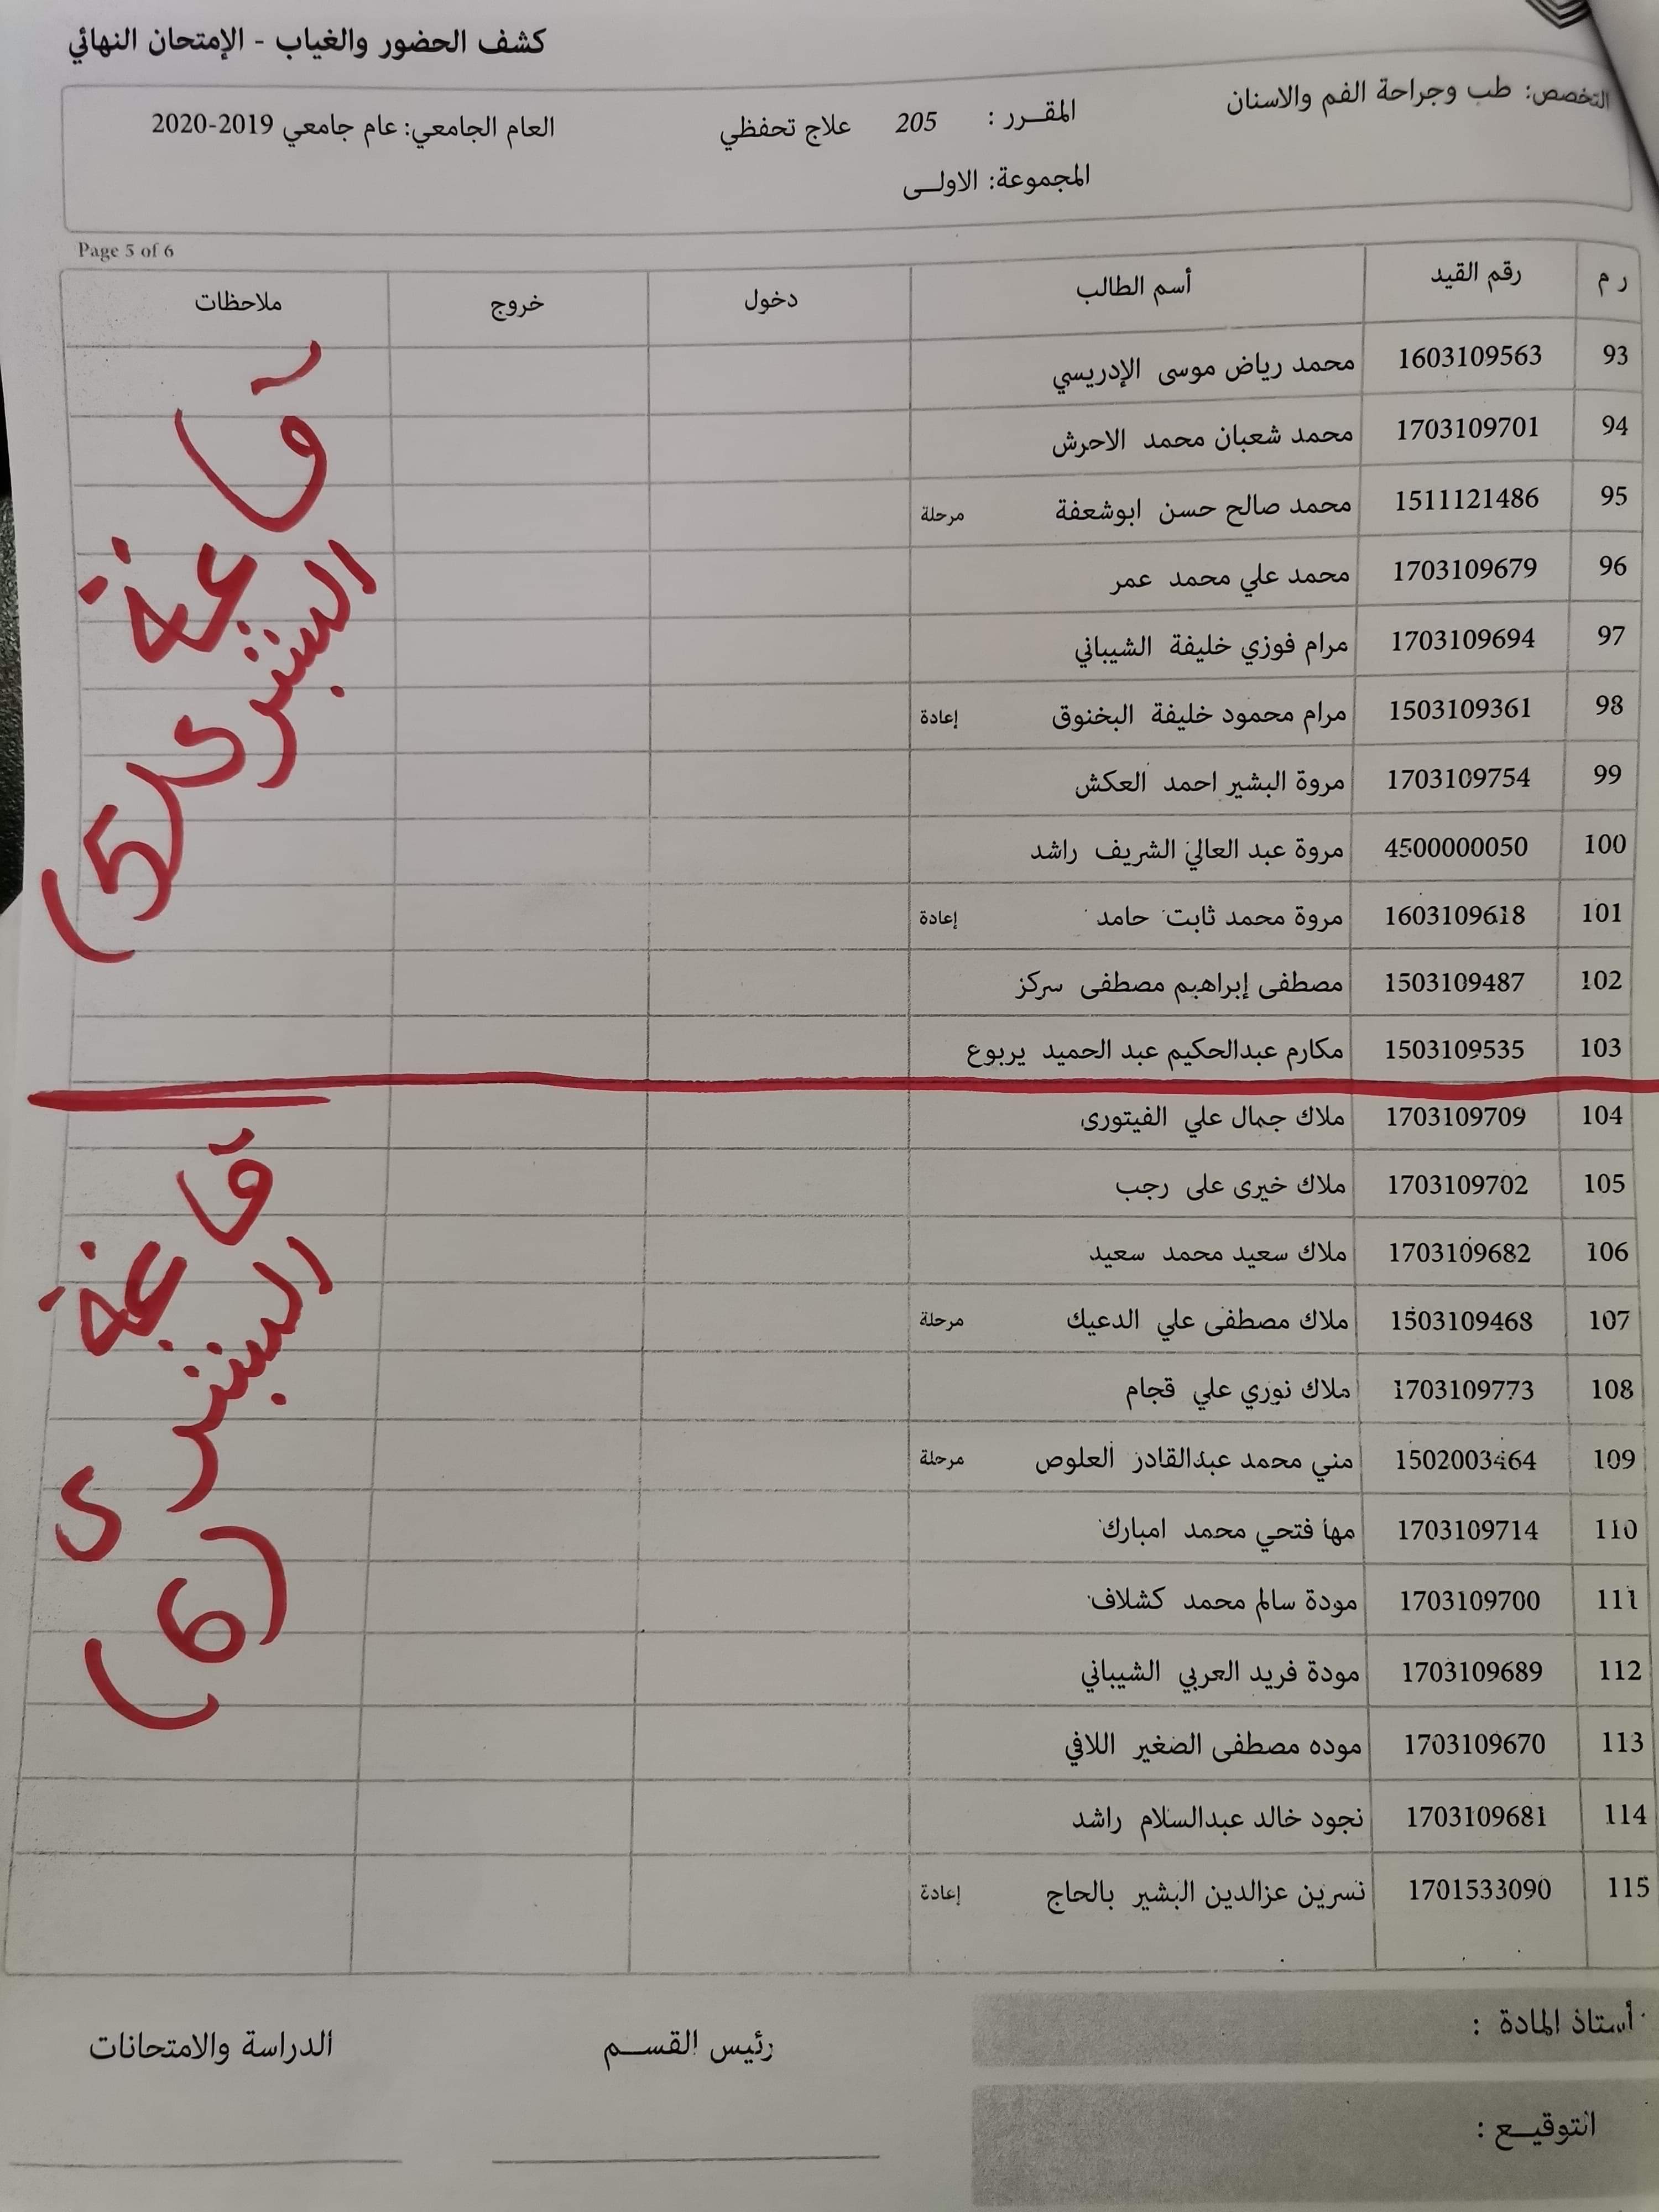 كشف الحضور والغياب - الإمتحان النهائي
التخصص: طب وجراحة الفم والاسنان
المقـــرر : 205 علاج تحفظي
العام الجامعي: عام جامعي 2019-2020
المجموعة: الاولــى
Page 5 of 6
ر م رقم القيد أسم الطالب دخول خروج ملاحظات
93 1603109563 محمد رياض موسى الإدريسي
94 1703109701 محمد شعبان محمد الاحرش
95 1511121486 محمد صالح حسن ابوشعفة مرحلة
96 1703109679 محمد علي محمد عمر
97 1703109694 مرام فوزي خليفة الشيباني
98 1503109361 مرام محمود خليفة البخنوق إعادة
99 1703109754 مروة البشير احمد العكش
100 4500000050 مروة عبد العالي الشريف راشد
101 1603109618 مروة محمد ثابت حامد إعادة
102 1503109487 مصطفى إبراهيم مصطفى سركز
103 1503109535 مكارم عبدالحكيم عبد الحميد يربوع
قاعة
(5)
104 1703109709 ملاك جمال علي الفيتورى
105 1703109702 ملاك خيرى على رجب
106 1703109682 ملاك سعيد محمد سعيد
107 1503109468 ملاك مصطفى علي الدعيك مرحلة
108 1703109773 ملاك نوري علي قجام
109 1502003464 مني محمد عبدالقادر العلوص مرحلة
110 1703109714 مها فتحي محمد امبارك
111 1703109700 مودة سالم محمد كشلاف
112 1703109689 مودة فريد العربي الشيباني
113 1703109670 موده مصطفى الصغير اللافي
114 1703109681 نجود خالد عبدالسلام راشد
115 1701533090 نسرين عزالدين البشير بالحاج إعادة
قاعة
(6)
أستاذ المادة :
رئيس القســـم
الدراسة والامتحانات
التوقيــع :